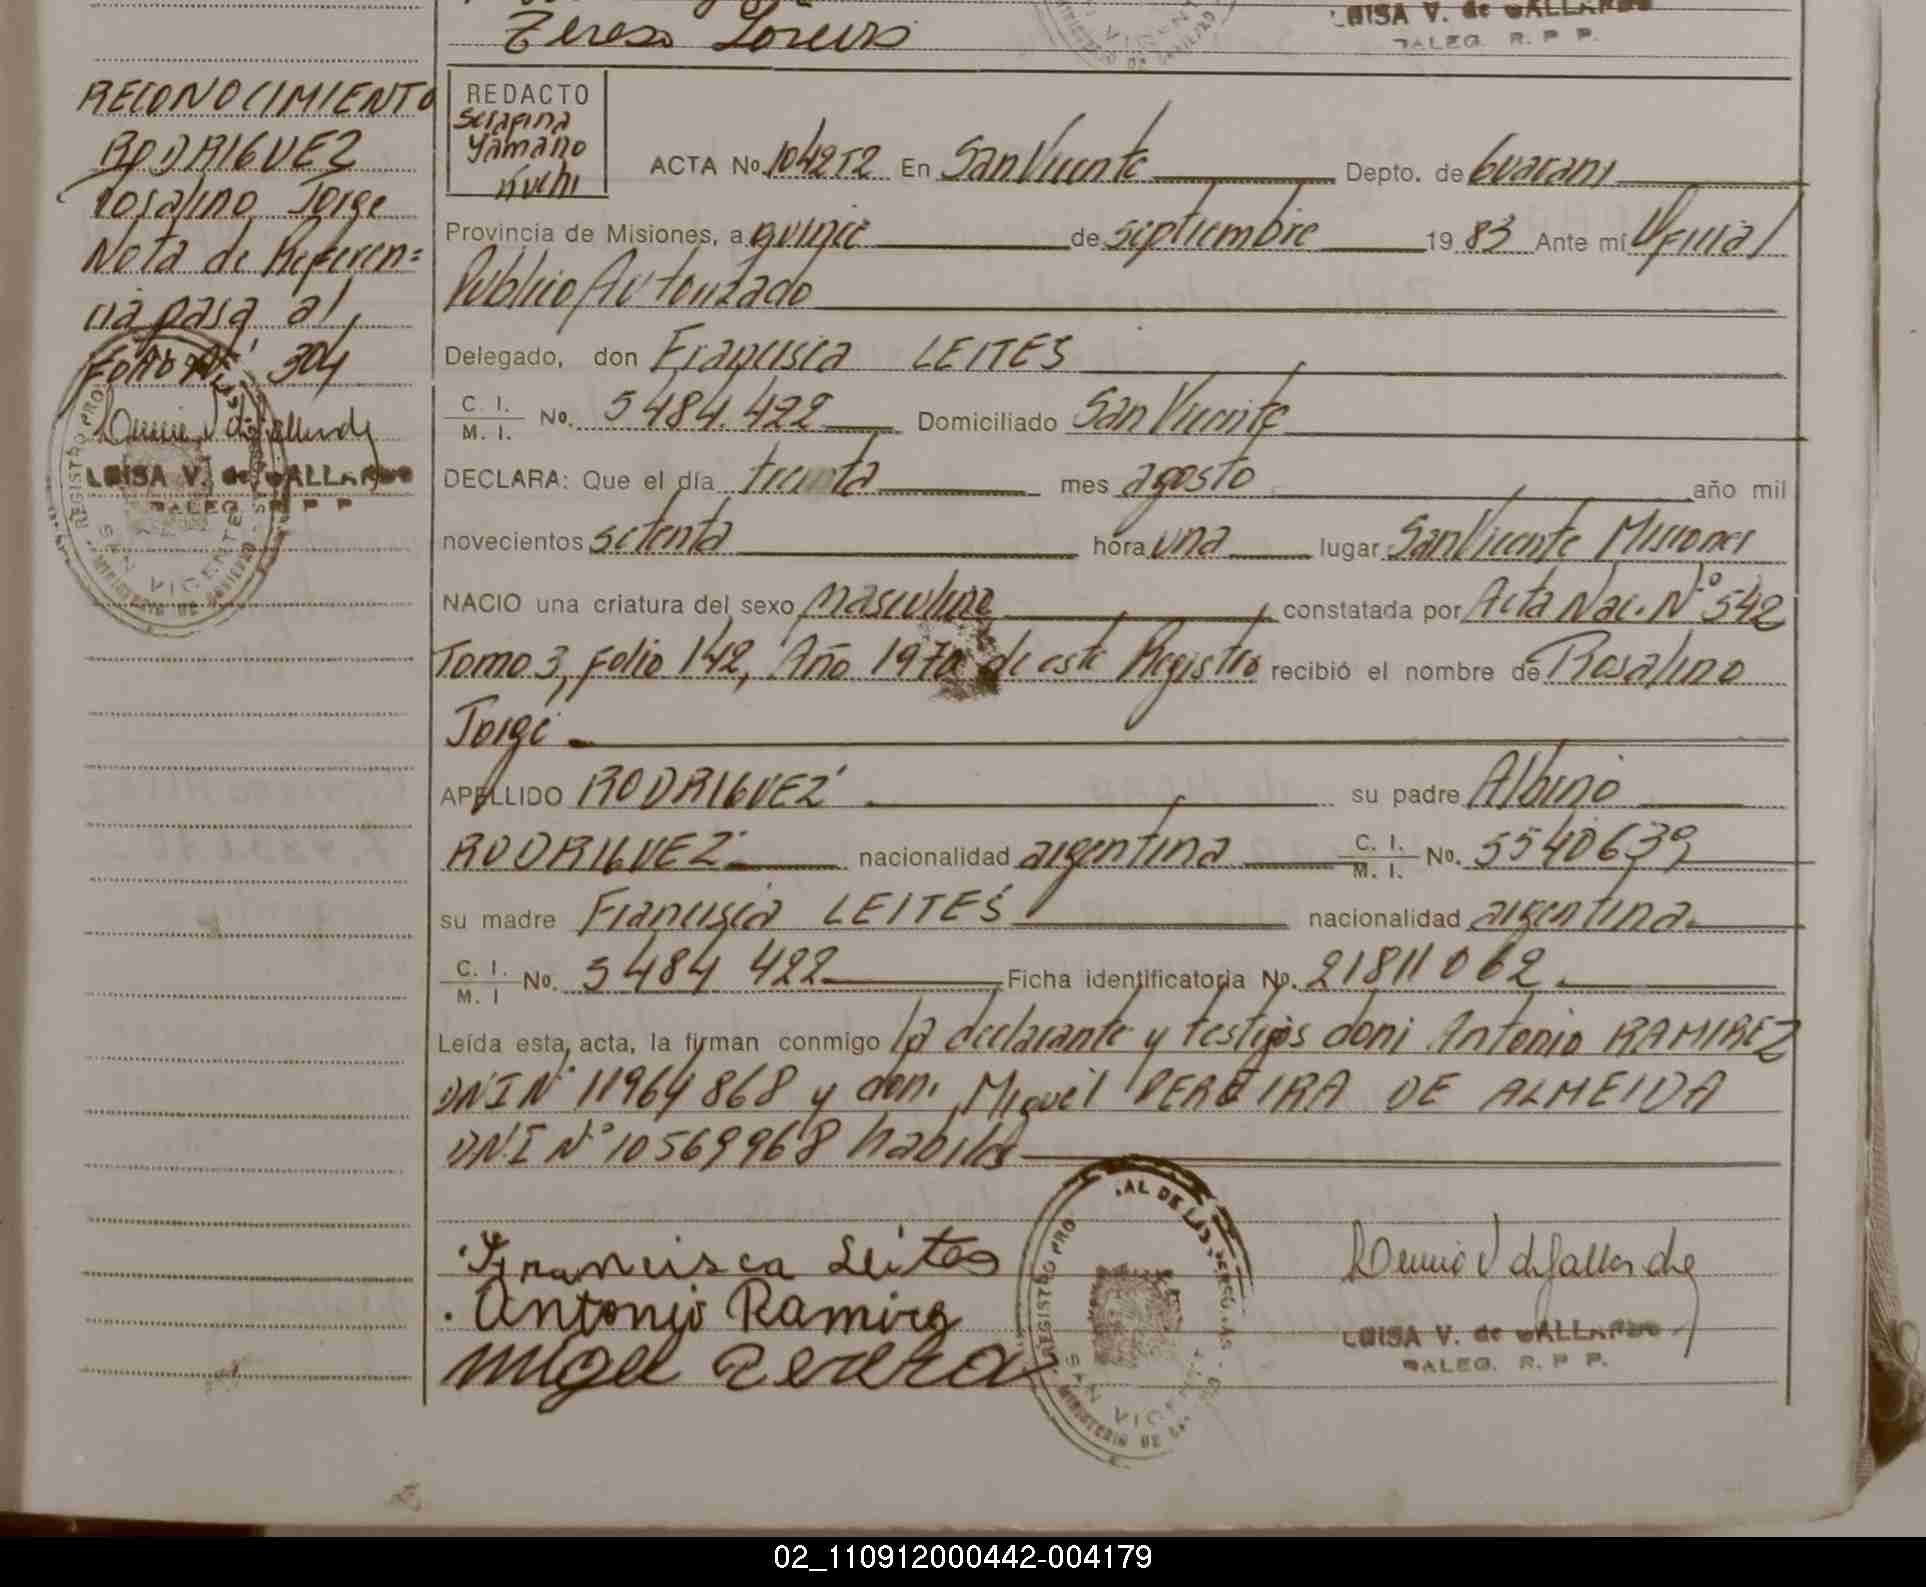 Teresa
LUISA V. de GALLARDO
DALEG. R. P. P.
RECONOCIMIENTO
RODRIGUEZ
Rosalino Jorge
Nota de Referen=
cia pasa al
Folio Nº 304
LUISA V. de GALLARDO
DALEG. R. P. P.
REGISTRO PRO
SAN VICENTE
MINISTERIO DE GOBIERNO
REDACTO
Serafina
Yamaño
ACTA No. 104252 En San Vicente Depto. de Guarani
Provincia de Misiones, a quince de septiembre 19 83 Ante mí Oficial
Publico Autorizado
Delegado, don Francisca LEITES
C. I. / M. I. No. 5484.422 Domiciliado San Vicente
DECLARA: Que el día treinta mes agosto año mil
novecientos setenta hora una lugar San Vicente Misiones
NACIO una criatura del sexo masculino constatada por Acta Nac. Nº 542
Tomo 3, Folio 142, Año 1970 de este Registro recibió el nombre de Rosalino
Jorge
APELLIDO RODRIGUEZ su padre Albino
RODRIGUEZ nacionalidad argentina C. I. / M. I. No. 5540639
su madre Francisca LEITES nacionalidad argentina
C. I. / M. I No. 5484 422 Ficha identificatoria No. 21811062
Leída esta acta, la firman conmigo la declarante y testigos don: Antonio RAMIREZ
DNI Nº 11964868 y don: Miguel PEREIRA DE ALMEIDA
D.N.I Nº 10569968 habiles
Francisca Leites
Antonio Ramirez
Migel Pereira
REGISTRO PRO
SAN VICENTE
LUISA V. de GALLARDO
DALEG. R. P. P.
02_110912000442-004179